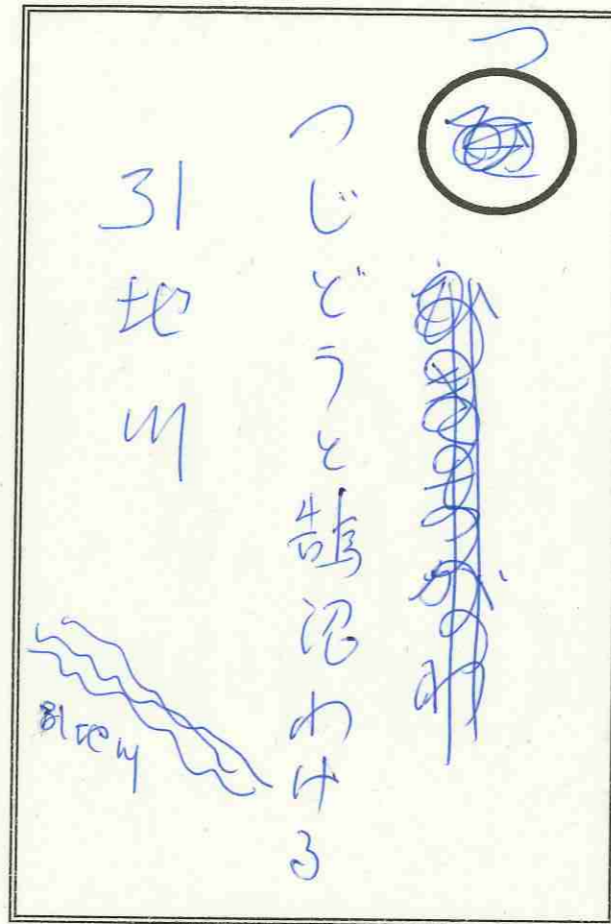 つ
つじどうと鵠沼わける
引地川
引地川